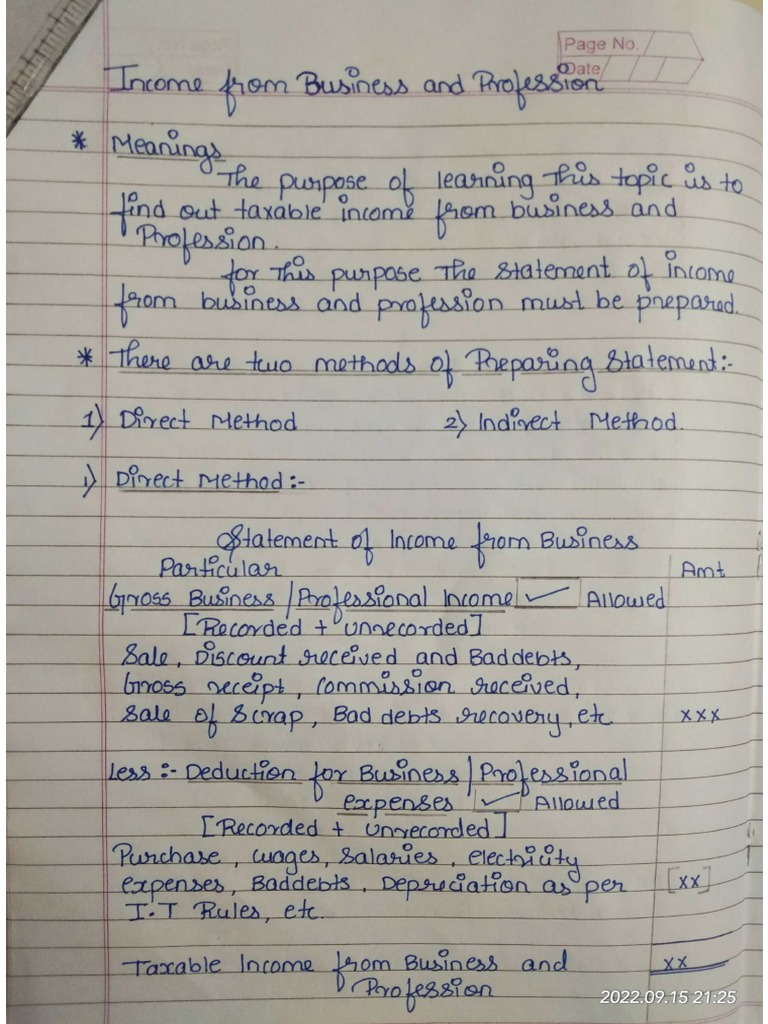 Page No.
Date
Income from Business and Profession
* Meanings
The purpose of learning this topic is to
find out taxable income from business and
Profession.
for this purpose The statement of income
from business and profession must be prepared.
* There are two methods of Preparing Statement:-
1) Direct Method 2) Indirect Method.
1) Direct Method:-
Statement of Income from Business
Particular Amt
Gross Business / Professional Income ✓ Allowed
[Recorded + Unrecorded]
Sale, Discount received and Baddebts,
Gross receipt, Commission received,
Sale of Scrap, Bad debts recovery, etc xxx
Less:- Deduction for Business / Professional
expenses ✓ Allowed
[Recorded + Unrecorded]
Purchase, wages, Salaries, electricity
expenses, Baddebts, Depreciation as per [xx]
I.T Rules, etc.
Taxable Income from Business and xx
Profession
2022.09.15 21:25